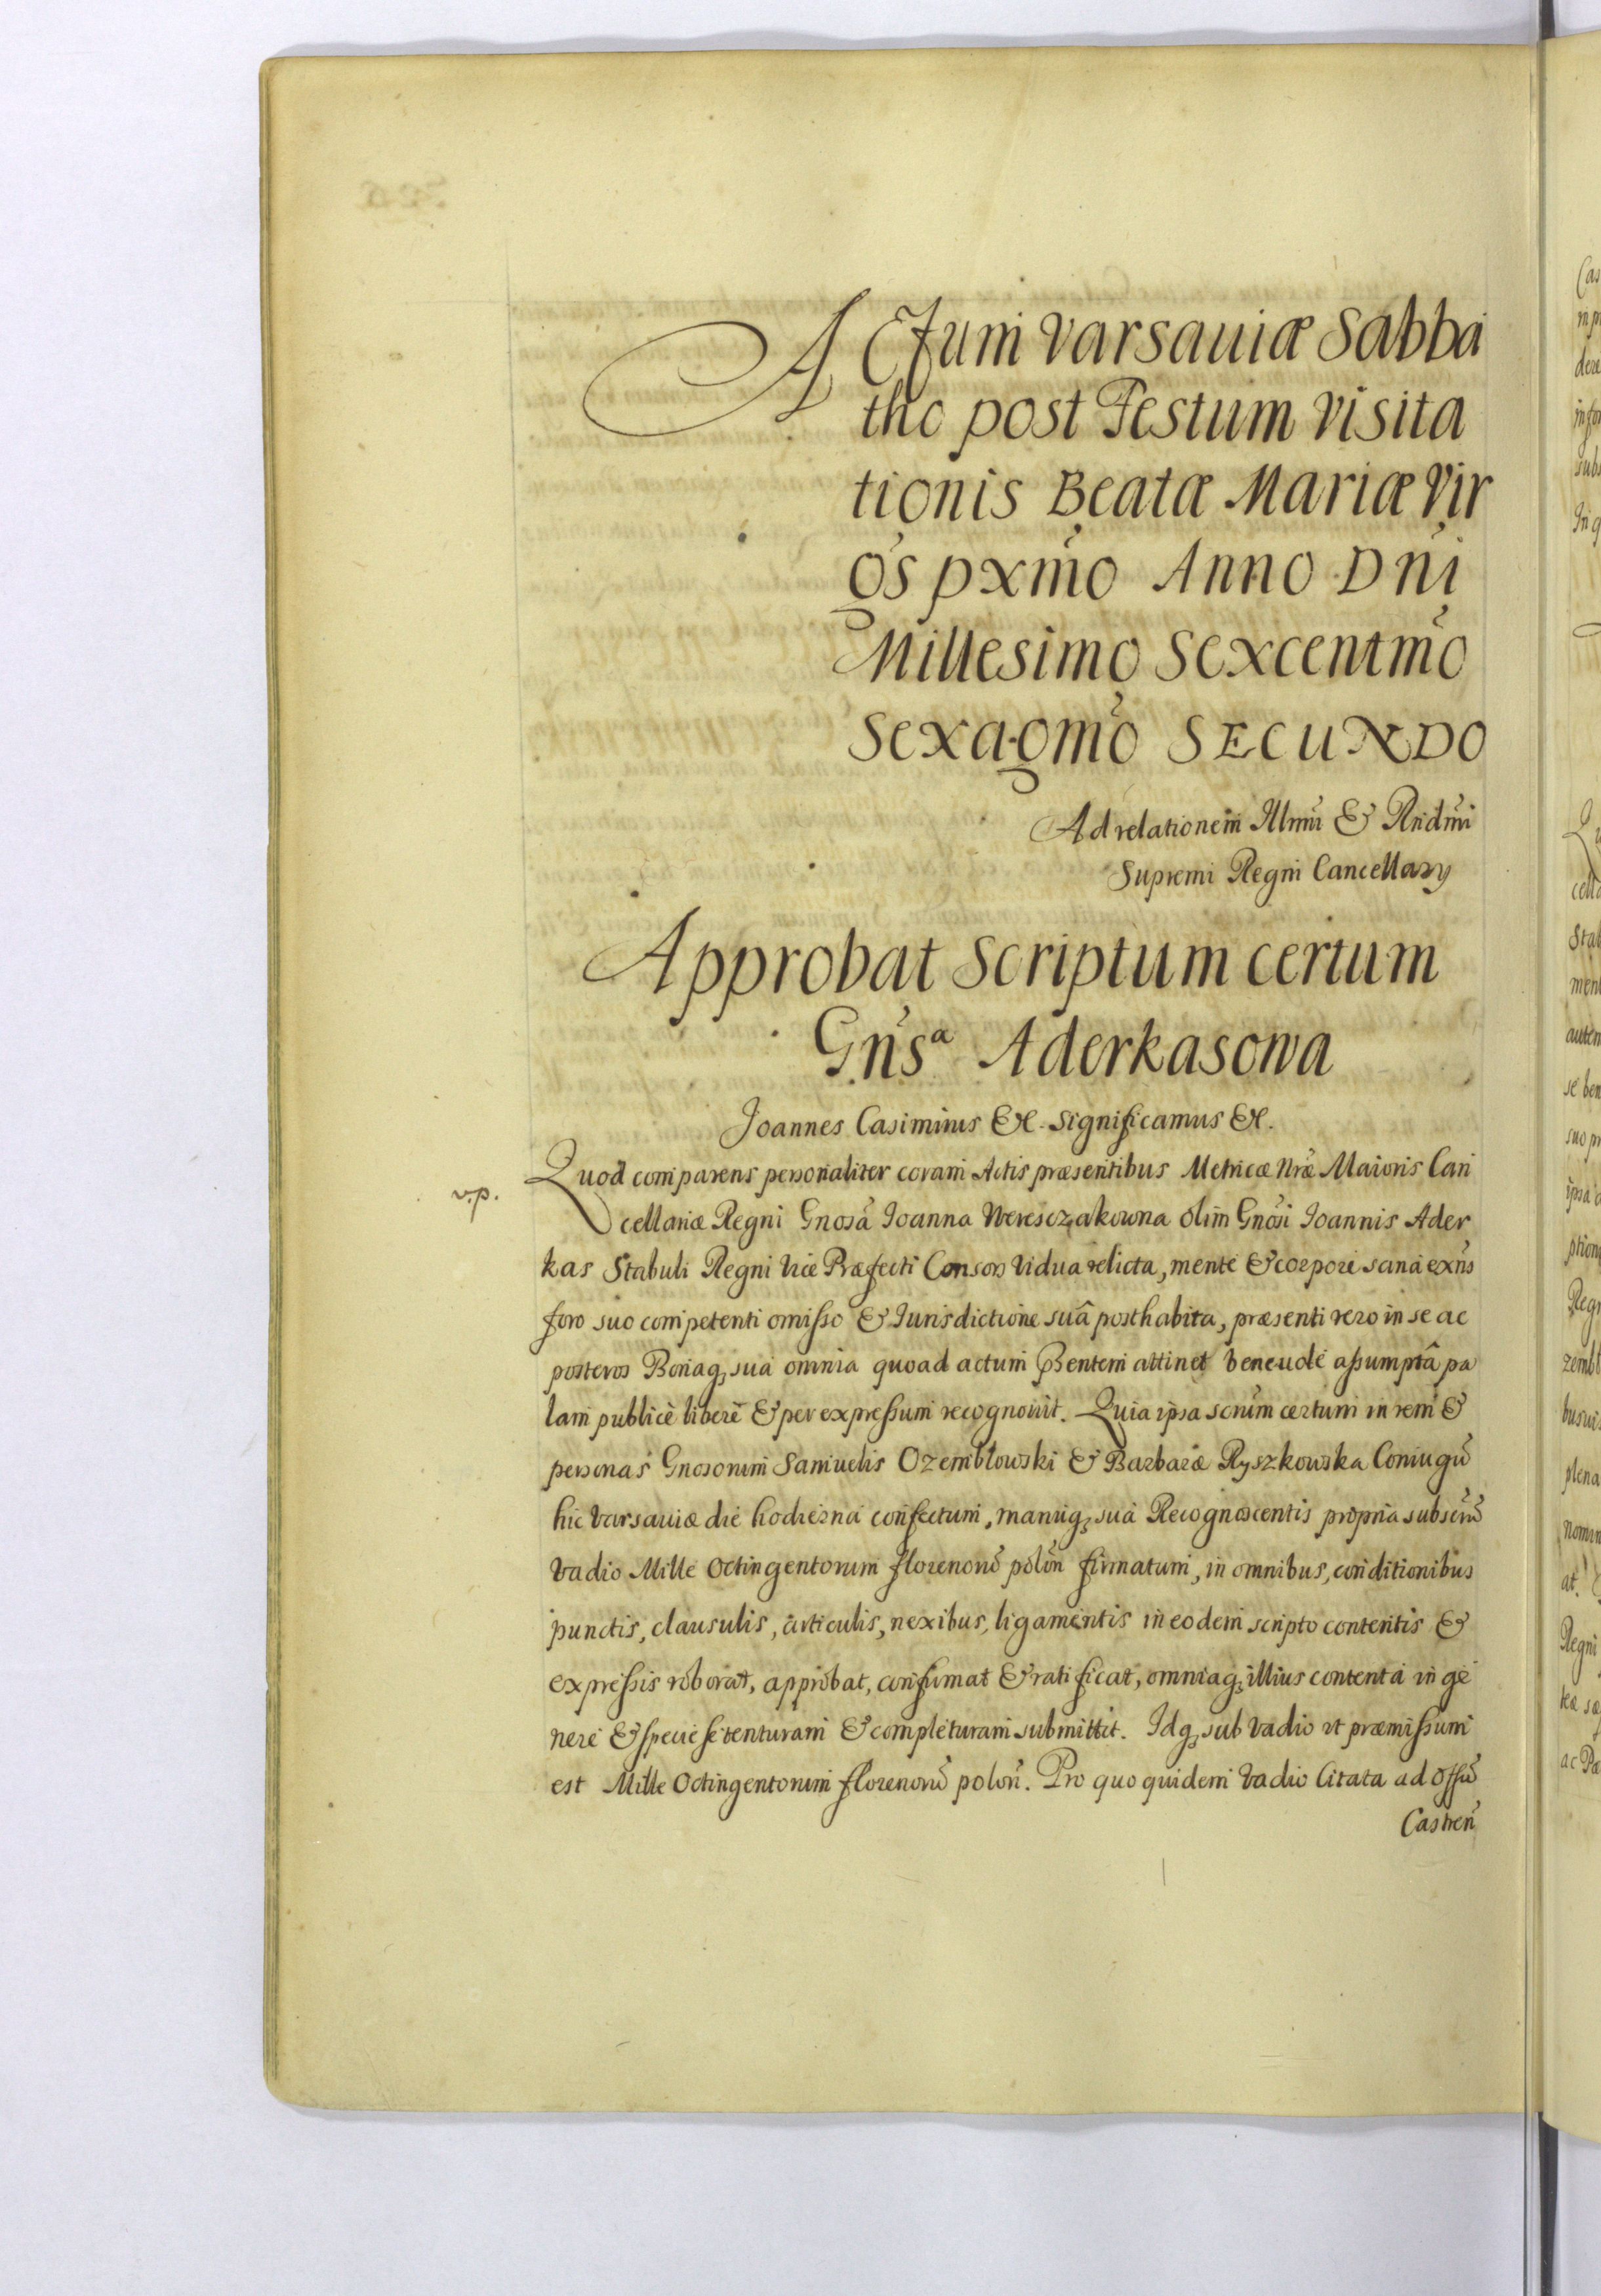 ACtum Varsauiæ Sabba
tho post Festum Visita
tionis Beatæ Mariæ Vir
g̃s pxm̃o Anno Dñi
Millesimo Sexcentm̃o
Sexagm̃o SECUNDO
Ad relationem Illmi & Rndmi
Supremi Regni Cancellary
Approbat Scriptum certum
Gñsᵃ Aderkasowa
Joannes Casimirus &c. Significamus &c.
v.p.
Quod comparens personaliter coram Actis præsentibus Metricæ Nr̃æ Maioris Can
cellariæ Regni Gnosa Joanna Weresczakowna olim Gnosi Joannis Ader
kas Stabuli Regni Vice Præfecti Consors Vidua relicta, mente & corpore sana exñs
foro suo competenti omisso & Jurisdictione suâ posthabita, præsenti vero in se ac
posteros Bonaq, sua omnia quoad actum pñtem attinet bene ude assumptâ pa
lam publicè liberè & per expressum recognouit. Quia ipsa scrũm certum in rem &
personas Gnosorum Samuelis Ozembłowski & Barbaræ Ryszkowska Coniugũ
hic Varsauiæ die hodierna confectum, manuq, sua Recognoscentis propria subscrũ
Vadio Mille Octingentorum florenorũ polon̄ firmatum, in omnibus, conditionibus
punctis, clausulis, articulis, nexibus, ligamentis in eodem scripto contentis &
expressis roborat, approbat, confirmat & ratificat, omniaq, illius contenta in ge
nere & specie se tenturam & completuram submittit. Idq, sub Vadio ut præmissum
est Mille Octingentorum florenorũ polon̄. Pro quo quidem Vadio Citata ad Offũ
Castreñ